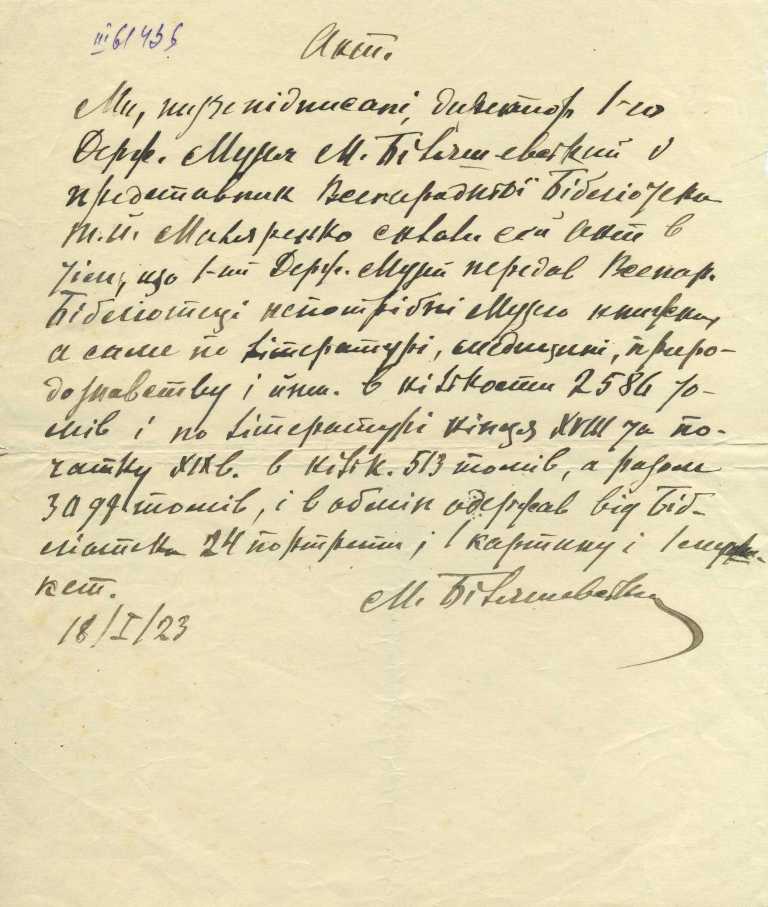 III 61435
Акт.
Ми, низчепідписані, директор 1-го
Держ. Музея М. Біляшевський і
представник Всенародньої Бібліотеки
Маляренко склали сей Акт в
тім, що 1-ий Держ. Музей передав Всенар.
Бібліотеці непотрібні Музею книжки,
а саме по літературі, медицині, приро-
дознавству і инш. в кількости 2586 то-
мів і по літературі кінця XVIII та по-
чатку XIX в. в кільк. 513 томів, а разом
3099 томів, і в обмін одержав від Біб-
ліотеки 24 портрети, 1 картину і 1
кет.
М. Біляшевський
18/I/23